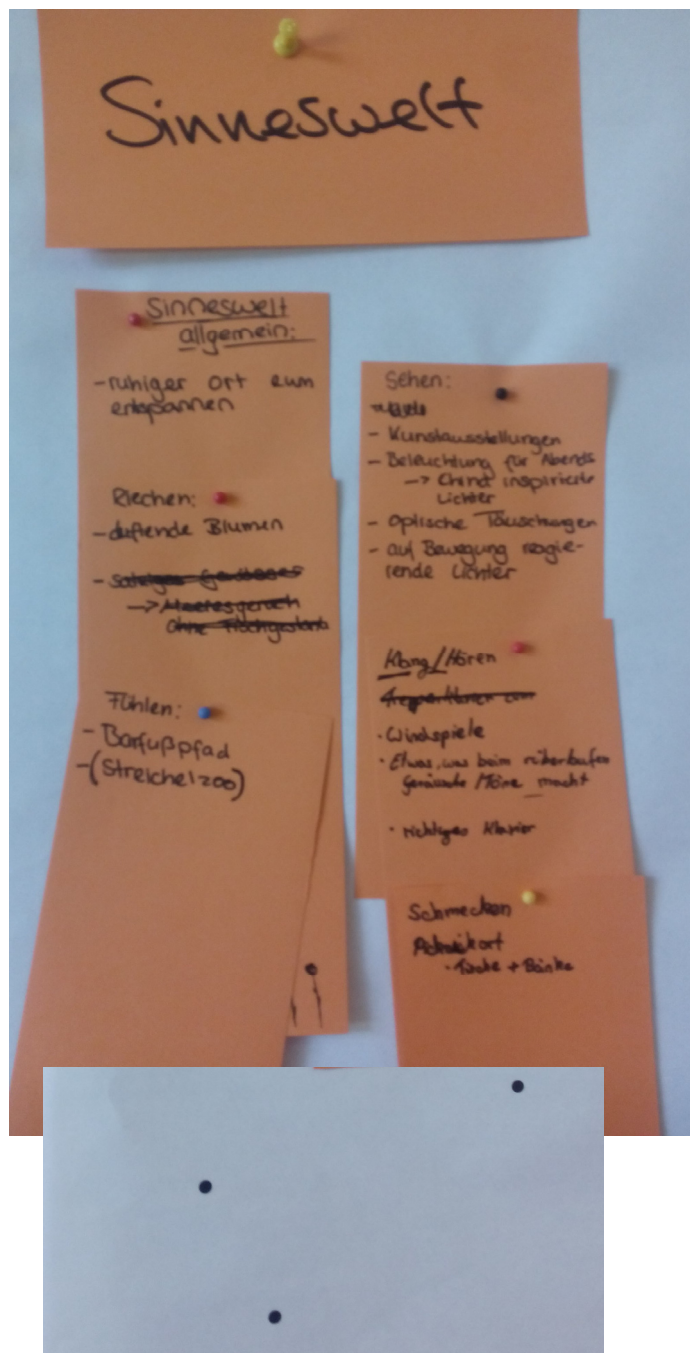 Sinneswelt
Sinneswelt
allgemein:
- ruhiger Ort zum
entspannen
Riechen:
- duftende Blumen
Fühlen:
- Barfußpfad
- (Streichelzoo)
Sehen:
- Kunstausstellungen
- Beleuchtung für Abends
-> China inspirierte
Lichter
- Optische Täuschungen
- auf Bewegung reagie-
rende Lichter
Klang/Hören
· Windspiele
· Etwas, was beim rüberlaufen
Geräusche/Töne macht
· richtiges Klavier
Schmecken
· Tische + Bänke